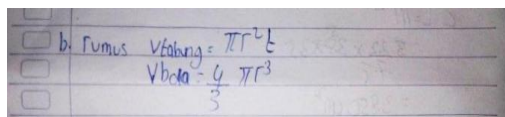 b. rumus Vtabung = πr²t
Vbola = 4/3 πr³